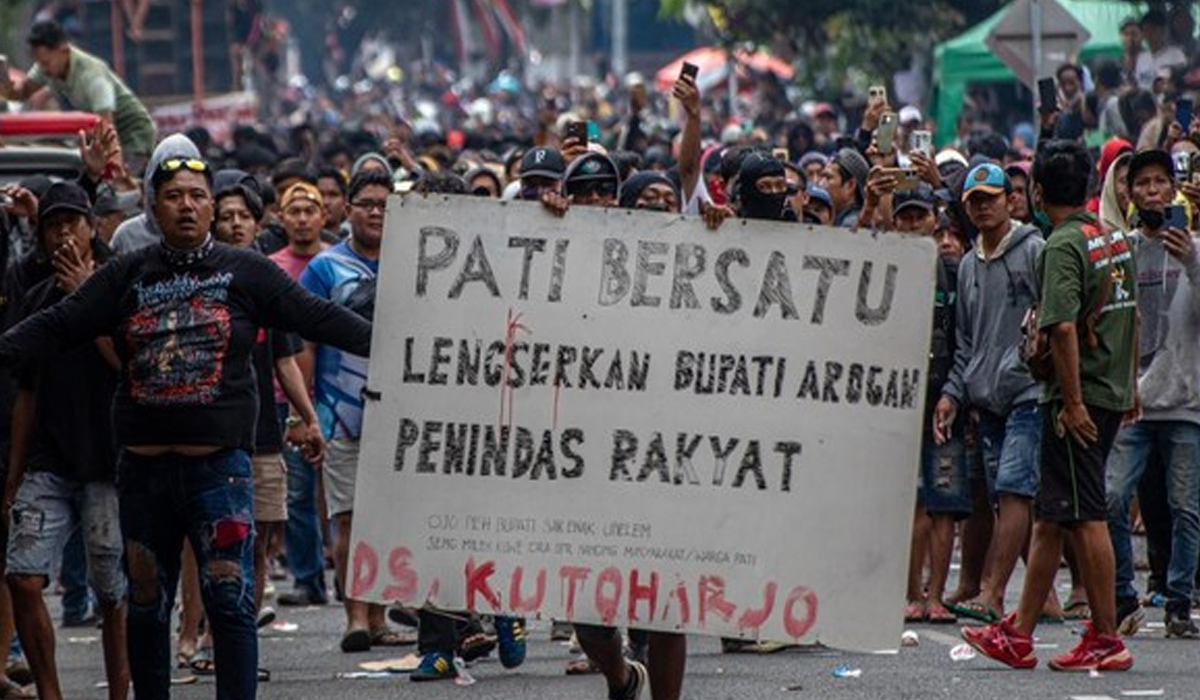 PATI BERSATU
LENGSERKAN BUPATI AROGAN
PENINDAS RAKYAT
OJO PEH BUPATI SAK ENAK UDELEM
SENG MILEH KUWE ORA DPR NANGING MASYARAKAT/WARGA PATI
DS. KUTOHARJO